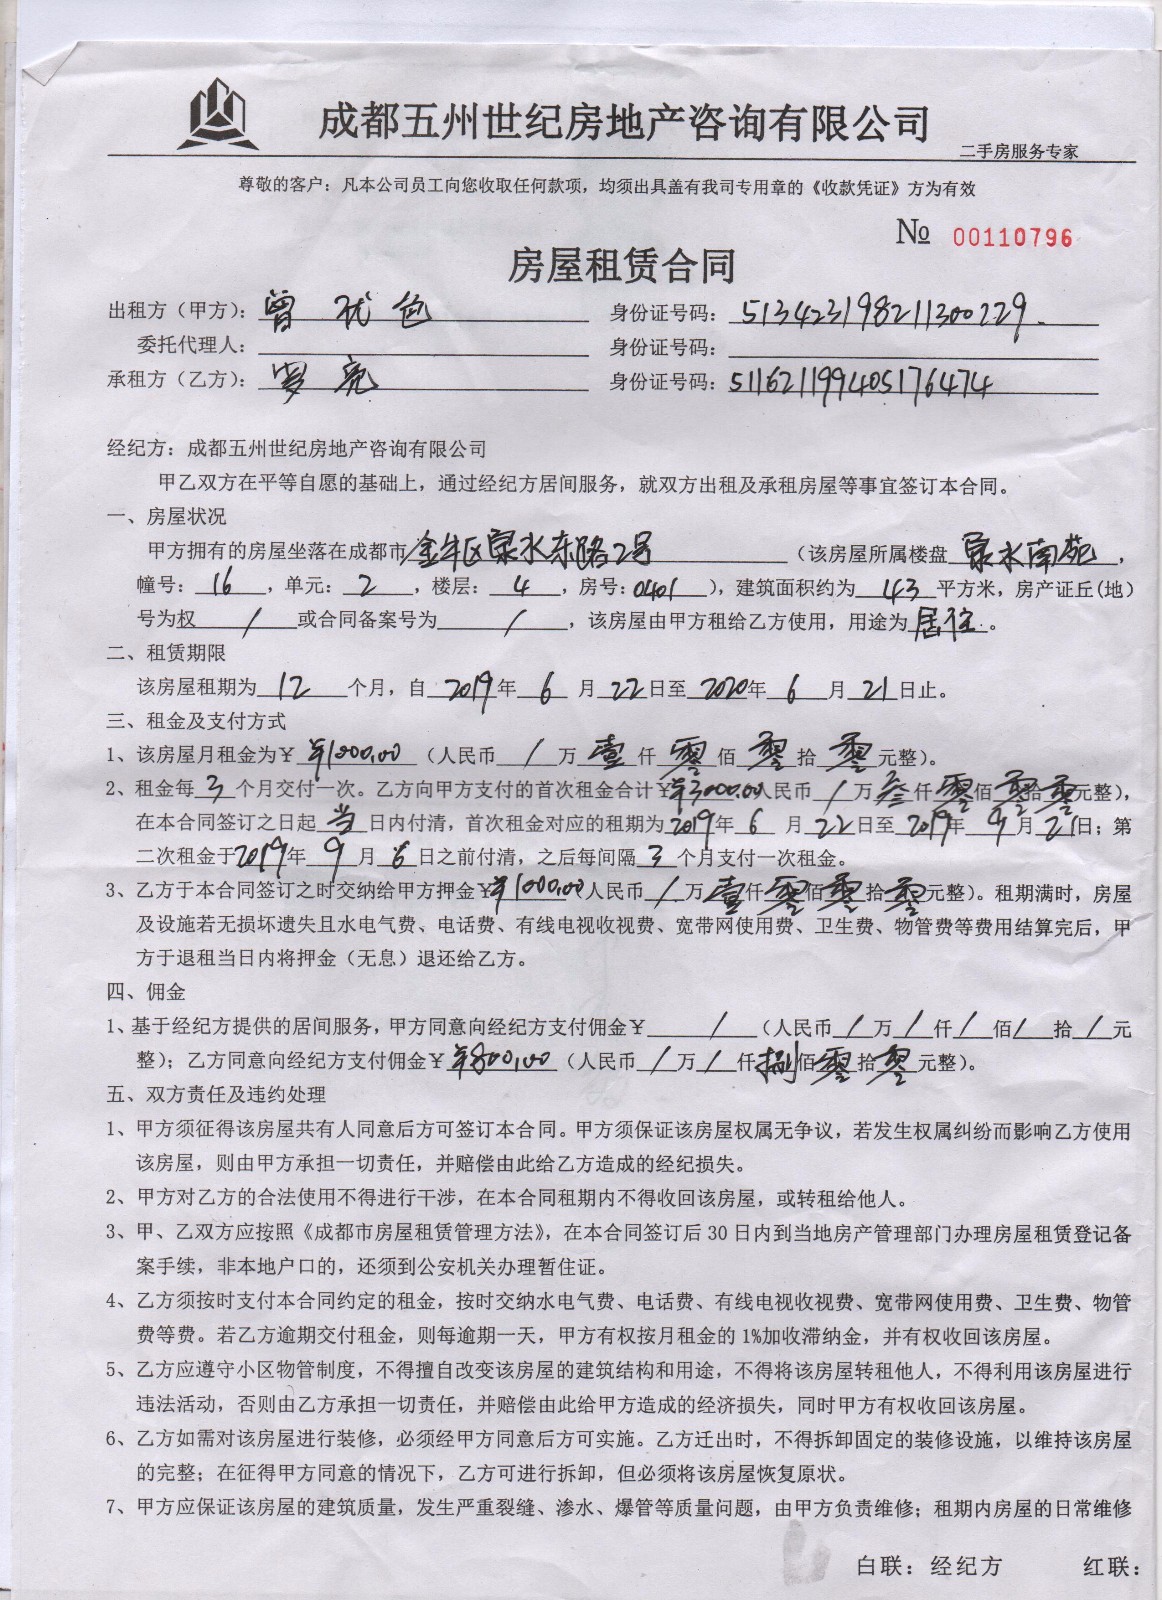 成都五州世纪房地产咨询有限公司
二手房服务专家
尊敬的客户：凡本公司员工向您收取任何款项，均须出具盖有我司专用章的《收款凭证》方为有效
№ 00110796
房屋租赁合同
出租方（甲方）：曾 色 身份证号码：513423198211300229
委托代理人： 身份证号码：
承租方（乙方）：罗亮 身份证号码：511621199405176474
经纪方：成都五州世纪房地产咨询有限公司
甲乙双方在平等自愿的基础上，通过经纪方居间服务，就双方出租及承租房屋等事宜签订本合同。
一、房屋状况
甲方拥有的房屋坐落在成都市金牛区泉水东路2号（该房屋所属楼盘泉水南苑，
幢号：16，单元：2，楼层：4，房号：0401），建筑面积约为43平方米，房产证丘(地)
号为权/或合同备案号为/，该房屋由甲方租给乙方使用，用途为居住。
二、租赁期限
该房屋租期为12个月，自2019年6月22日至2020年6月21日止。
三、租金及支付方式
1、该房屋月租金为￥¥1000.00（人民币/万壹仟零佰零拾零元整）。
2、租金每3个月交付一次。乙方向甲方支付的首次租金合计￥¥3000.00人民币/万叁仟零佰零拾零元整），
在本合同签订之日起当日内付清，首次租金对应的租期为2019年6月22日至2019年9月21日；第
二次租金于2019年9月6日之前付清，之后每间隔3个月支付一次租金。
3、乙方于本合同签订之时交纳给甲方押金￥¥1000.00（人民币/万壹仟零佰零拾零元整）。租期满时，房屋
及设施若无损坏遗失且水电气费、电话费、有线电视收视费、宽带网使用费、卫生费、物管费等费用结算完后，甲
方于退租当日内将押金（无息）退还给乙方。
四、佣金
1、基于经纪方提供的居间服务，甲方同意向经纪方支付佣金￥/（人民币/万/仟/佰/拾/元
整）；乙方同意向经纪方支付佣金￥¥800.00（人民币/万/仟捌佰零拾零元整）。
五、双方责任及违约处理
1、甲方须征得该房屋共有人同意后方可签订本合同。甲方须保证该房屋权属无争议，若发生权属纠纷而影响乙方使用
该房屋，则由甲方承担一切责任，并赔偿由此给乙方造成的经纪损失。
2、甲方对乙方的合法使用不得进行干涉，在本合同租期内不得收回该房屋，或转租给他人。
3、甲、乙双方应按照《成都市房屋租赁管理方法》，在本合同签订后30日内到当地房产管理部门办理房屋租赁登记备
案手续，非本地户口的，还须到公安机关办理暂住证。
4、乙方须按时支付本合同约定的租金，按时交纳水电气费、电话费、有线电视收视费、宽带网使用费、卫生费、物管
费等费。若乙方逾期交付租金，则每逾期一天，甲方有权按月租金的1%加收滞纳金，并有权收回该房屋。
5、乙方应遵守小区物管制度，不得擅自改变该房屋的建筑结构和用途，不得将该房屋转租他人，不得利用该房屋进行
违法活动，否则由乙方承担一切责任，并赔偿由此给甲方造成的经济损失，同时甲方有权收回该房屋。
6、乙方如需对该房屋进行装修，必须经甲方同意后方可实施。乙方迁出时，不得拆卸固定的装修设施，以维持该房屋
的完整；在征得甲方同意的情况下，乙方可进行拆卸，但必须将该房屋恢复原状。
7、甲方应保证该房屋的建筑质量，发生严重裂缝、渗水、爆管等质量问题，由甲方负责维修；租期内房屋的日常维修
白联：经纪方 红联：